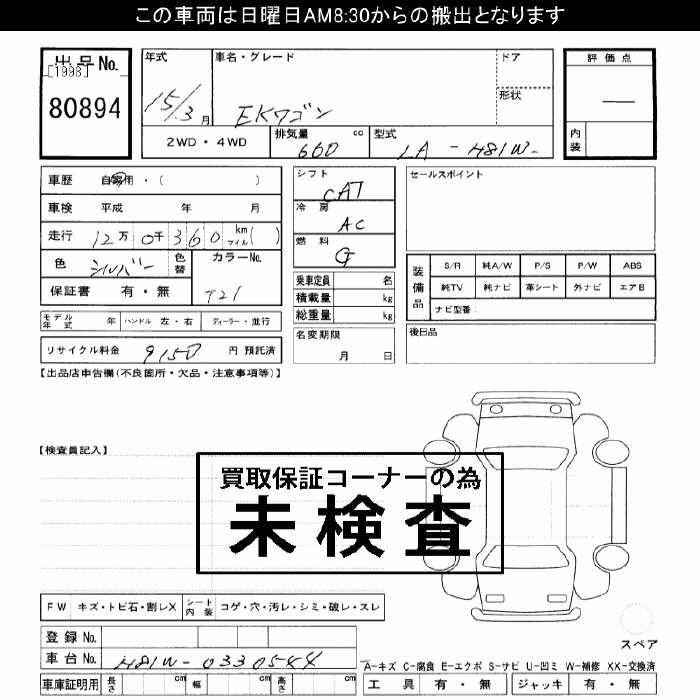 この車両は日曜日AM8:30からの搬出となります
出品No.
[1998]
80894
年式 車名・グレード ドア
15/3月 EKワゴン 形状
2WD・4WD 排気量 660 cc 型式 LA-H81W-
評価点
—
内装
車歴 自家用・( )
車検 平成 年 月
走行 12万0千360 km マイル( )
色 シルバー 色替 カラーNo.
保証書 有・無 T21
モデル年式 年 ハンドル 左・右 ディーラー・並行
リサイクル料金 9150 円 預託済
シフト CAT
冷房 AC
燃料 G
乗車定員 名
積載量 kg
総重量 kg
名変期限
月 日
セールスポイント
装備品 S/R 純A/W P/S P/W ABS
純TV 純ナビ 革シート 外ナビ エアB
ナビ型番
後日品
【出品店申告欄(不良箇所・欠品・注意事項等)】
【検査員記入】
買取保証コーナーの為
未検査
FW キズ・トビ石・割レX シート内装 コゲ・穴・汚レ・シミ・破レ・スレ
登録No.
車台No. H81W-0330544
車庫証明用 長さ cm 幅 cm 高さ cm
スペア
A-キズ C-腐食 E-エクボ S-サビ U-凹ミ W-補修 XX-交換済
工具 有・無 ジャッキ 有・無